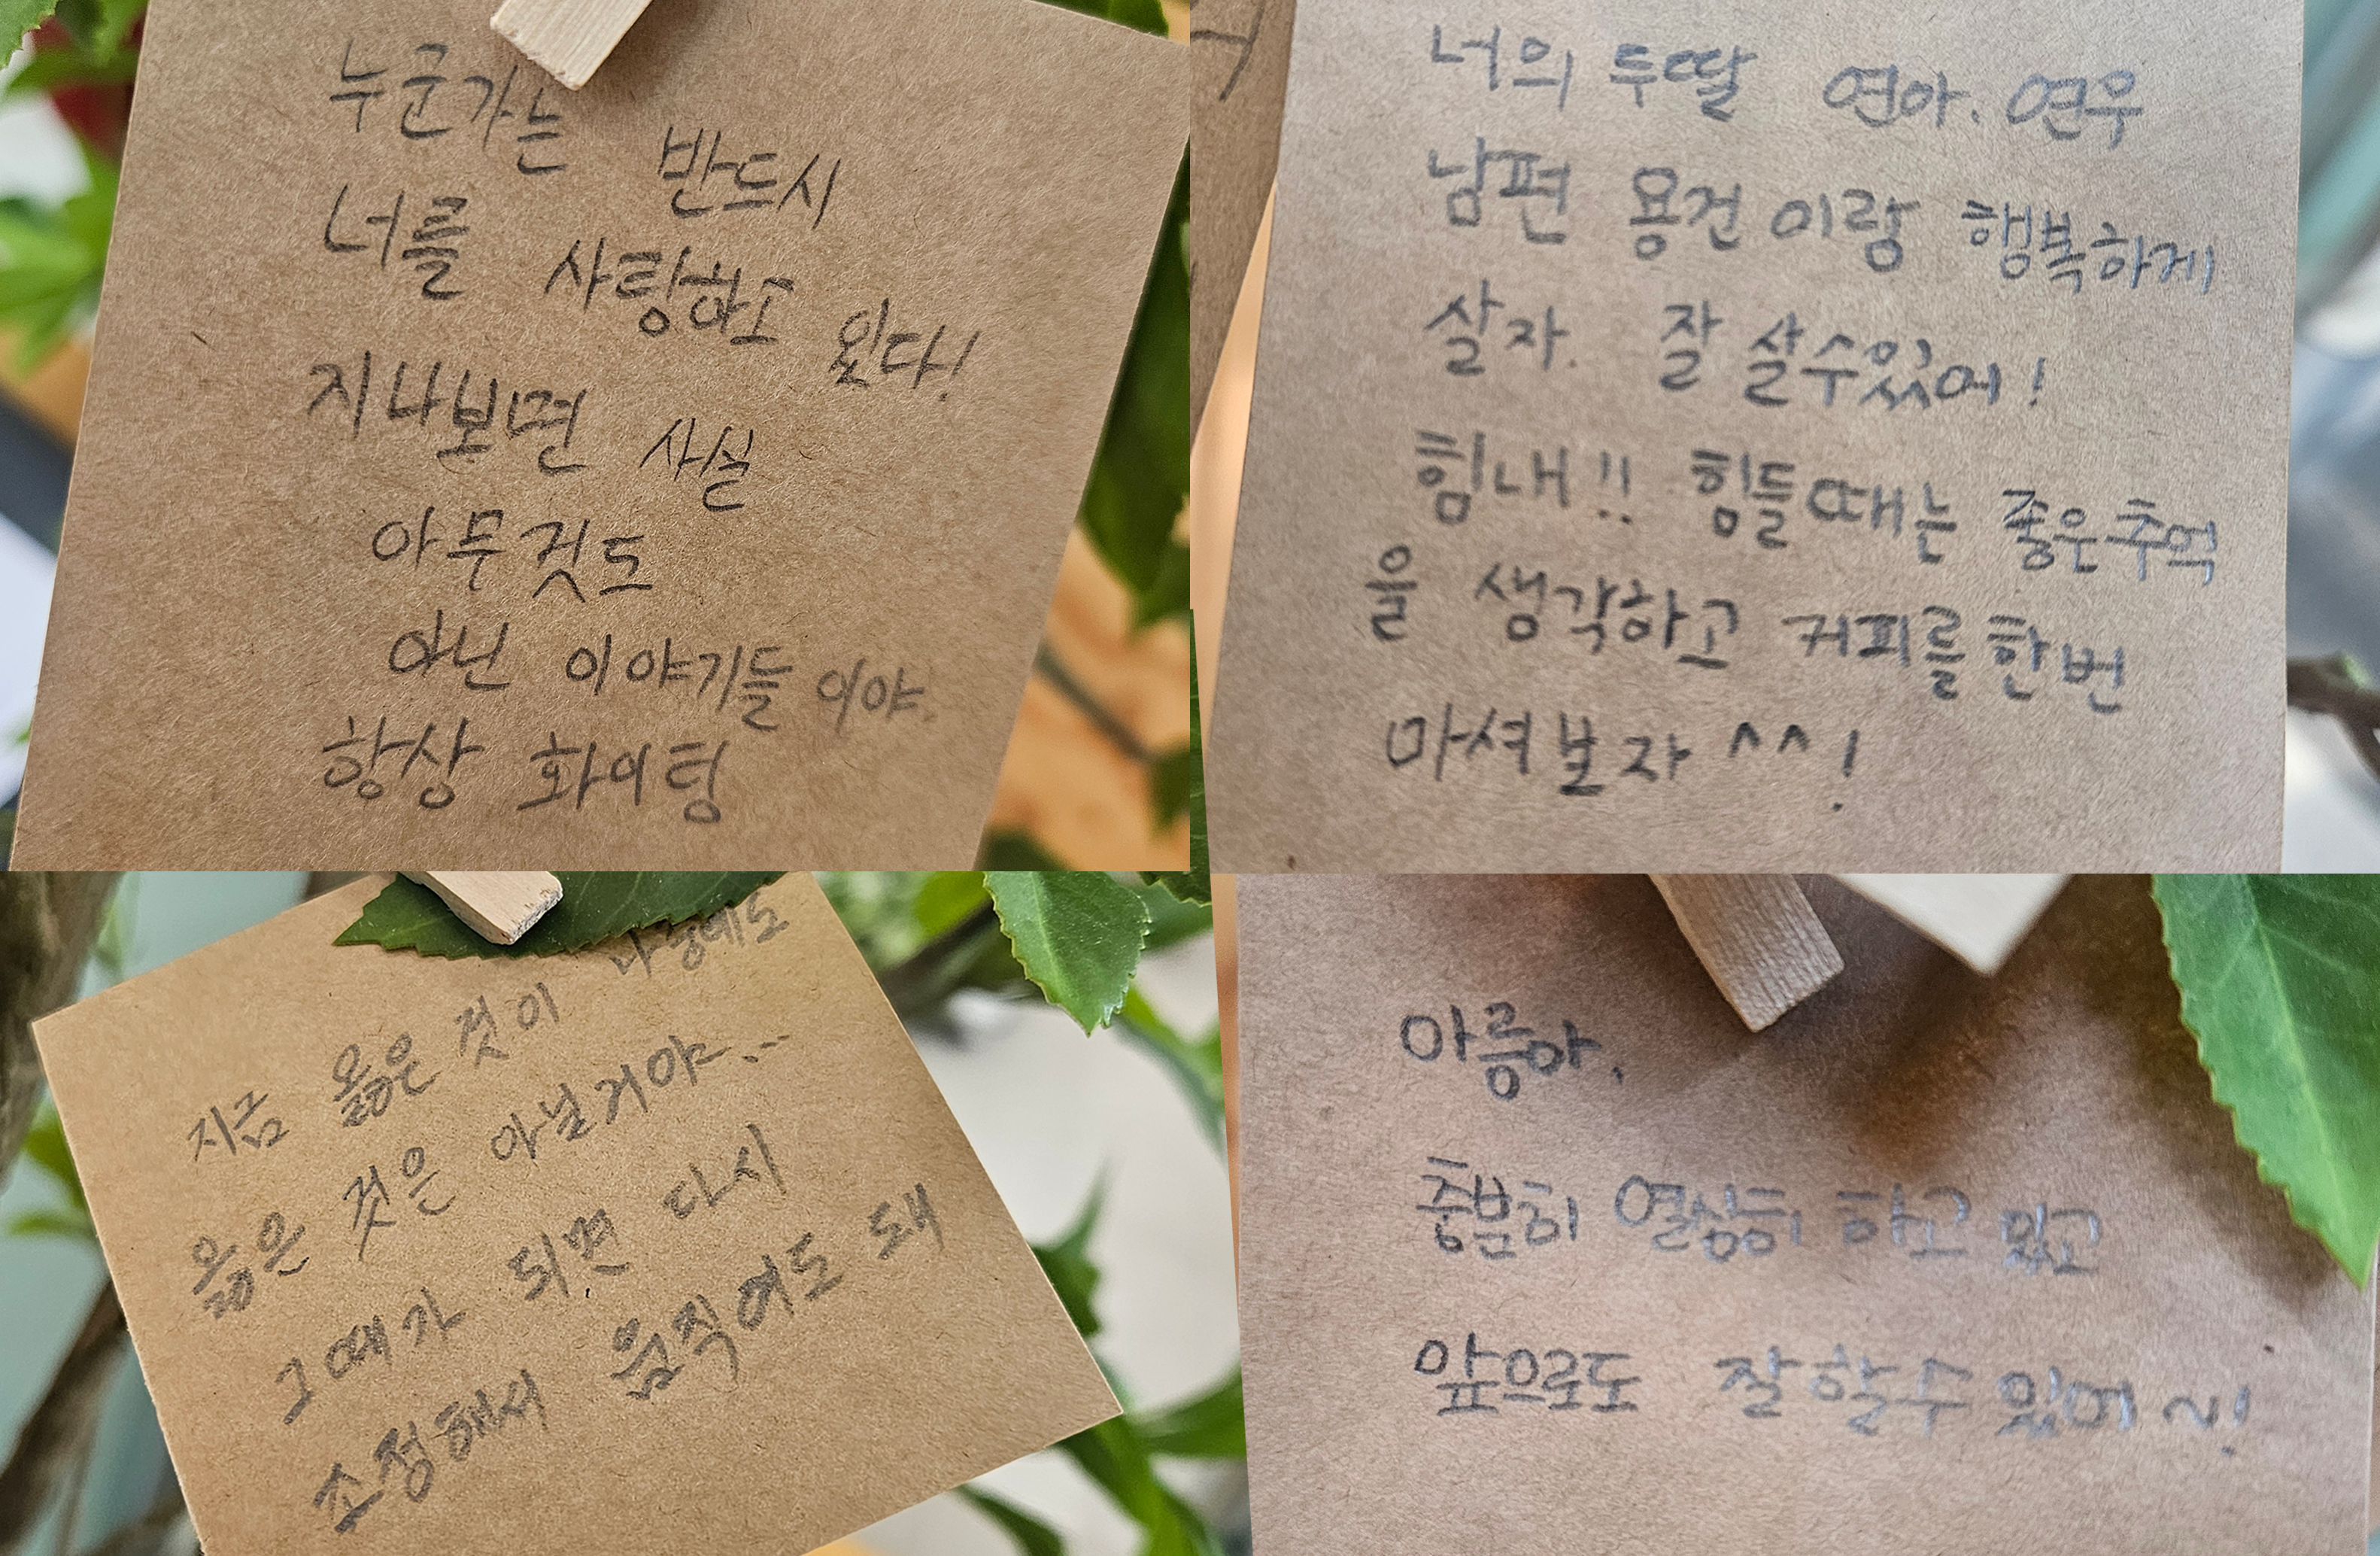 누군가는 반드시
너를 사랑하고 있다!
지나보면 사실
아무것도
아닌 이야기들이야.
항상 화이팅
너의 두딸 연아. 연우
남편 용건이랑 행복하게
살자. 잘 살수있어!
힘내!! 힘들때는 좋은추억
을 생각하고 커피를 한번
마셔보자 ^^!
지금 옳은 것이 나중에도
옳은 것은 아닐거야...
그때가 되면 다시
조정해서 움직여도 돼
아름아.
충분히 열심히 하고 있고
앞으로도 잘 할수 있어~!